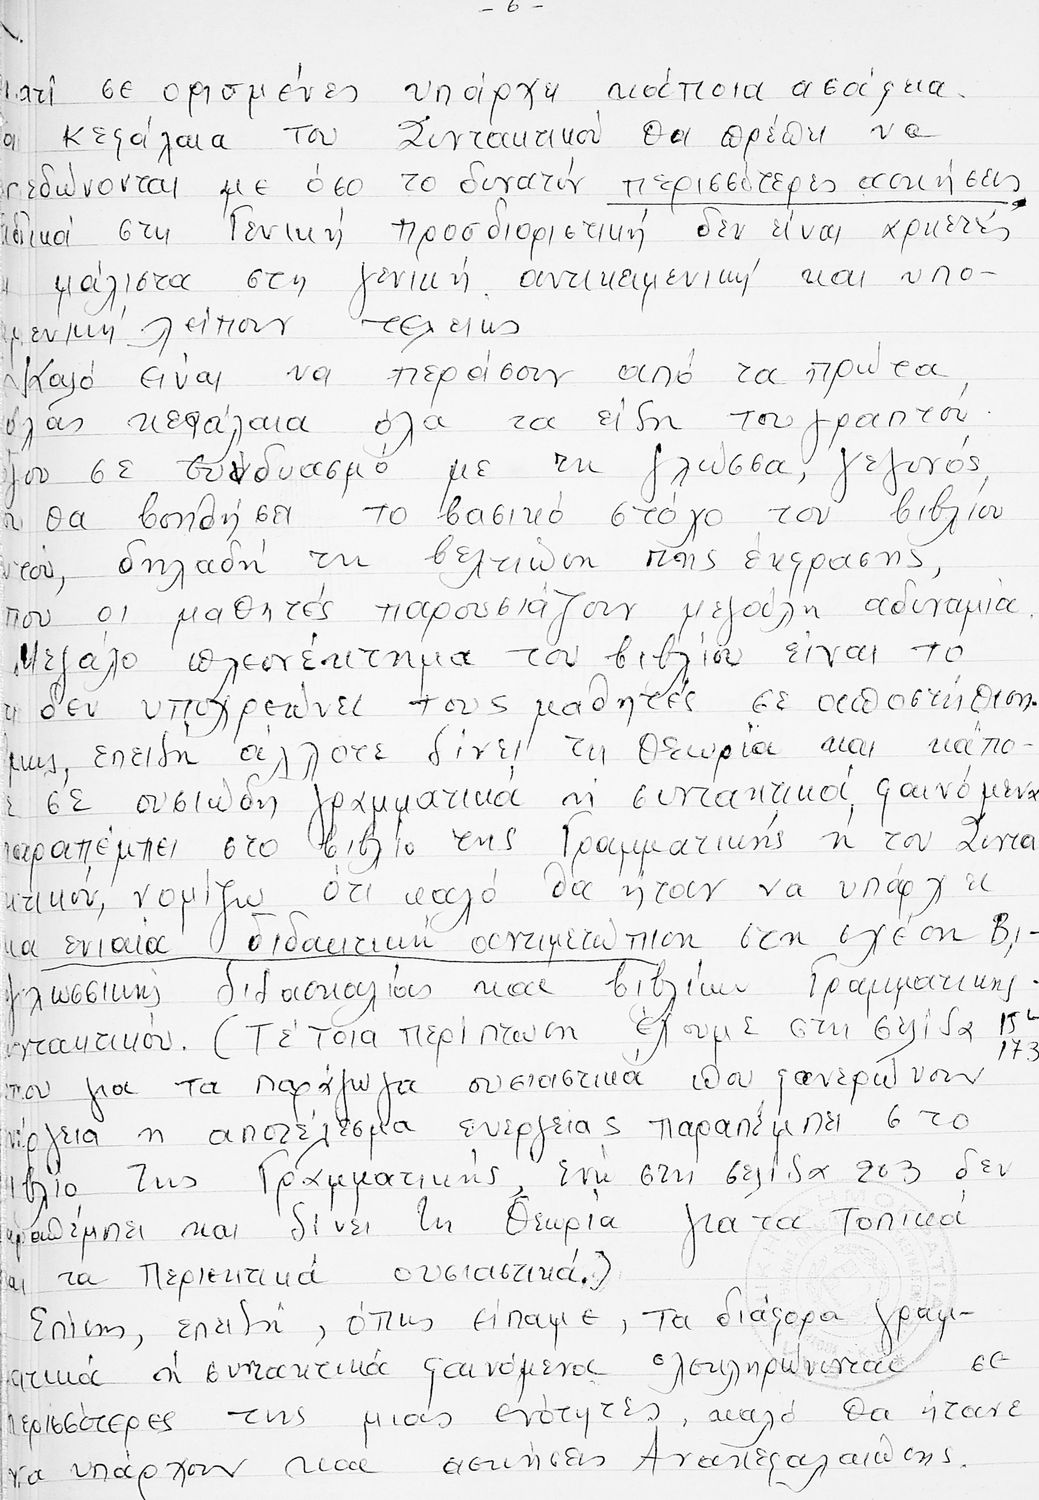 - 6 -
γιατί σε ορισμένες υπάρχει κάποια ασάφεια.
κεφάλαια του Συντακτικού θα πρέπει να
εδώνονται με όσο το δυνατόν περισσότερες ασκήσεις
ειδικά στη Γενική προσδιοριστική δεν είναι αρκετές
μάλιστα στη γενική αντικειμενική και υπο-
κειμενική λείπουν τελείως
Καλό είναι να περάσουν από τα πρώτα,
κεφάλαια όλα τα είδη του γραπτού
λόγου σε συνδυασμό με τη γλώσσα, γεγονός,
θα βοηθήσει το βασικό στόχο του βιβλίου
αυτού, δηλαδή τη βελτίωση της έκφρασης,
που οι μαθητές παρουσιάζουν μεγάλη αδυναμία.
Μεγάλο πλεονέκτημα του βιβλίου είναι το
ότι δεν υποχρεώνει τους μαθητές σε αποστήθιση.
Όμως, επειδή άλλοτε δίνει τη θεωρία και κάπο-
τε σε ουσιώδη γραμματικά ή συντακτικά φαινόμενα
παραπέμπει στο βιβλίο της Γραμματικής ή του Συντα
κτικού, νομίζω ότι καλό θα ήταν να υπάρχει
μια ενιαία διδακτική αντιμετώπιση στη σχέση Βι-
γλωσσικής διδασκαλίας και βιβλίων Γραμματικής-
Συντακτικού. (Τέτοια περίπτωση έχουμε στη σελίδα
173
που για τα παράγωγα ουσιαστικά που φανερώνουν
ενέργεια ή αποτέλεσμα ενεργείας παραπέμπει στο
βιβλίο της Γραμματικής, ενώ στη σελίδα 203 δεν
παραπέμπει και δίνει τη θεωρία για τα τοπικά
και τα περιεκτικά ουσιαστικά.)
Επίσης, επειδή, όπως είπαμε, τα διάφορα γραμ-
ματικά ή συντακτικά φαινόμενα ολοκληρώνονται σε
περισσότερες της μιας ενότητες, καλό θα ήτανε
να υπάρχουν και ασκήσεις Ανακεφαλαιώσης.